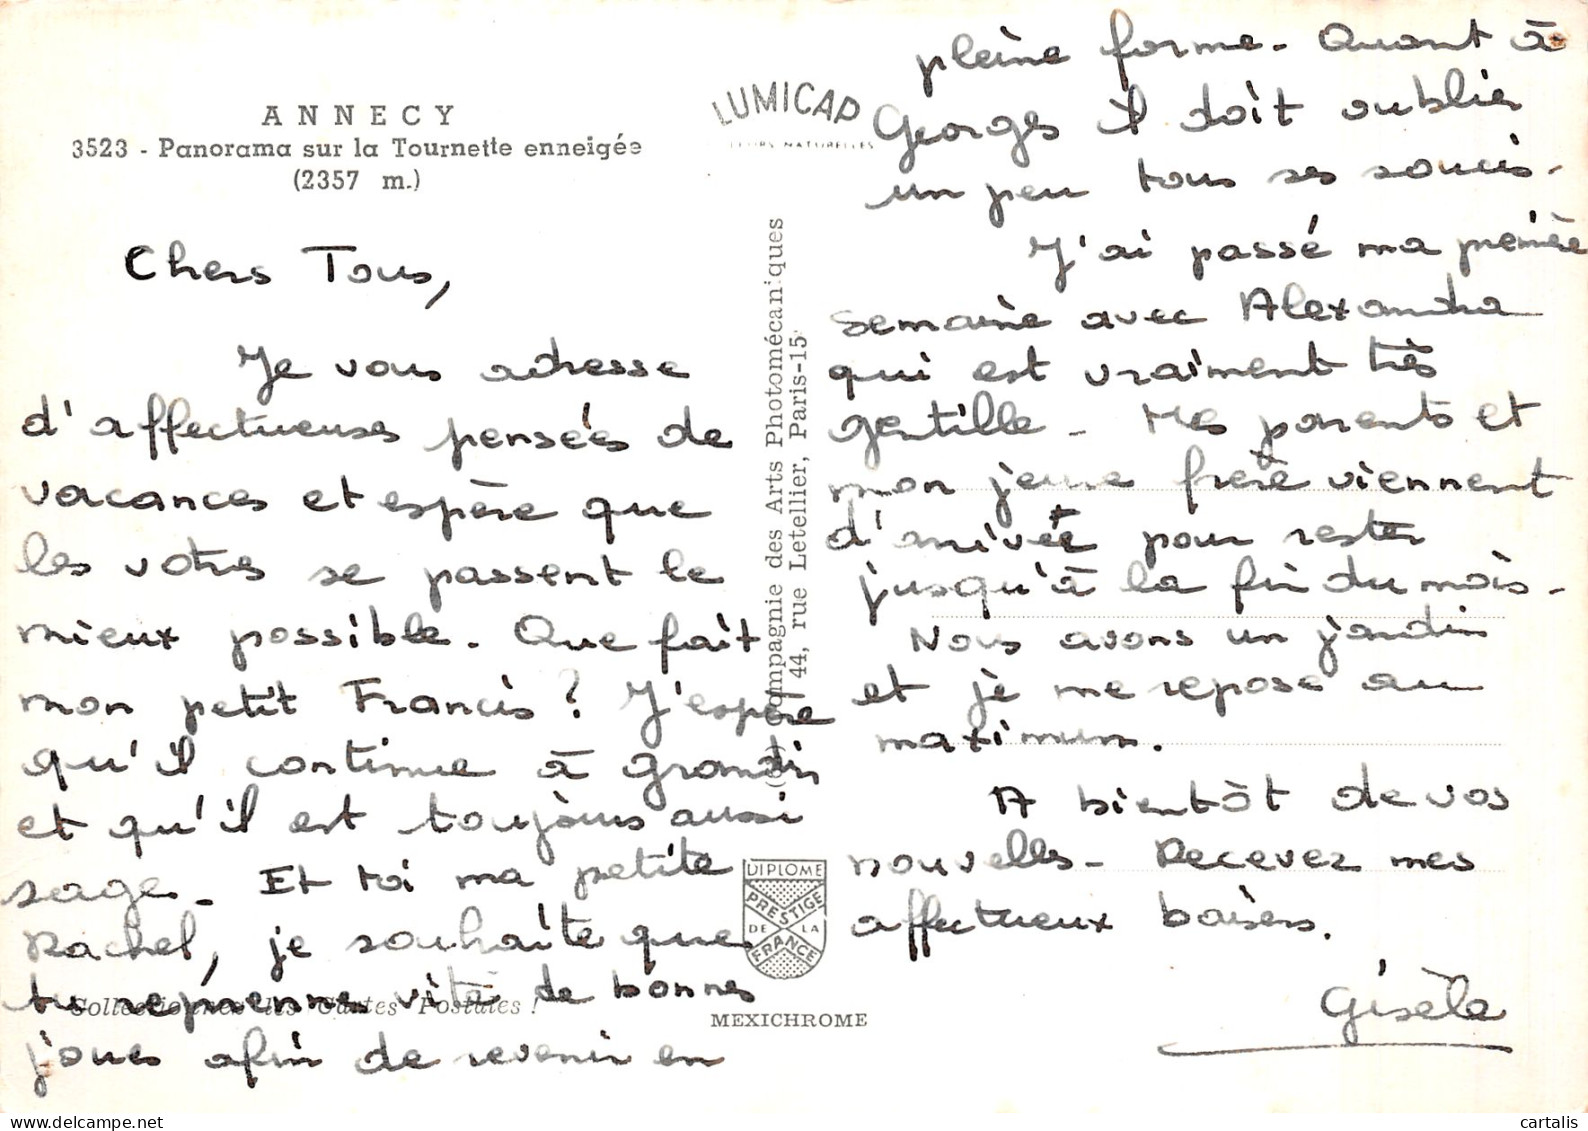 ANNECY
3523 - Panorama sur la Tournette enneigée
(2357 m.)
Chers Tous,
Je vous adresse
d'affectueuses pensées de
vacances et espère que
les votres se passent le
mieux possible. Que fait
mon petit Francis ? J'espère
qu'il continue à grandir
et qu'il est toujours aussi
sage - Et toi ma petite
Rachel, je souhaite que
tu reprennes vite de bonnes
joues afin de revenir en
Collectionnez les Cartes Postales !
LUMICAP
Compagnie des Arts Photomécaniques
44, rue Letellier, Paris-15
DIPLOME
PRESTIGE
DE LA
FRANCE
MEXICHROME
pleine forme - Quant à
Georges il doit oublier
un peu tous ses soucis -
J'ai passé ma première
semaine avec Alexandra
qui est vraiment très
gentille - Mes parents et
mon jeune frère viennent
d'arrivée pour rester
jusqu'à la fin du mois -
Nous avons un jardin
et je me repose au
maximum.
A bientôt de vos
nouvelles - Recevez mes
affectueux baisers.
Gisèle
cartalis